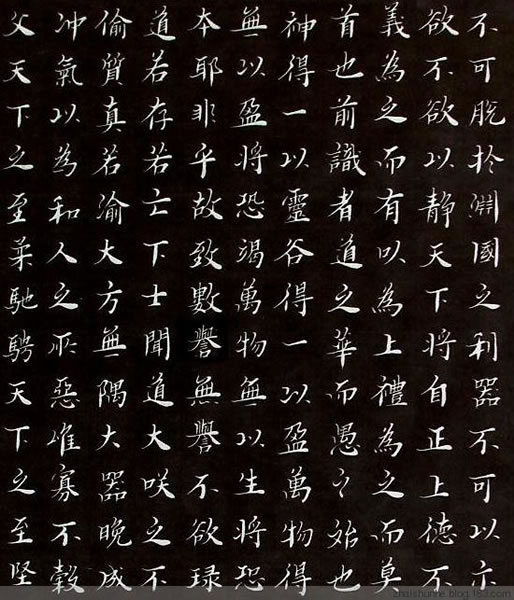 不可脫於淵國之利器不可以示
欲不欲以靜天下將自正上德不
義為之而有以為上禮為之而莫
首也前識者道之華而愚之始也
神得一以靈谷得一以盈萬物得
無以盈將恐竭萬物無以生將恐
本耶非乎故致數譽無譽不欲琭
道若存若亡下士聞道大咲之不
偷質真若渝大方無隅大器晚成
沖氣以為和人之所惡唯寡不穀
父天下之至柔馳騁天下之至堅